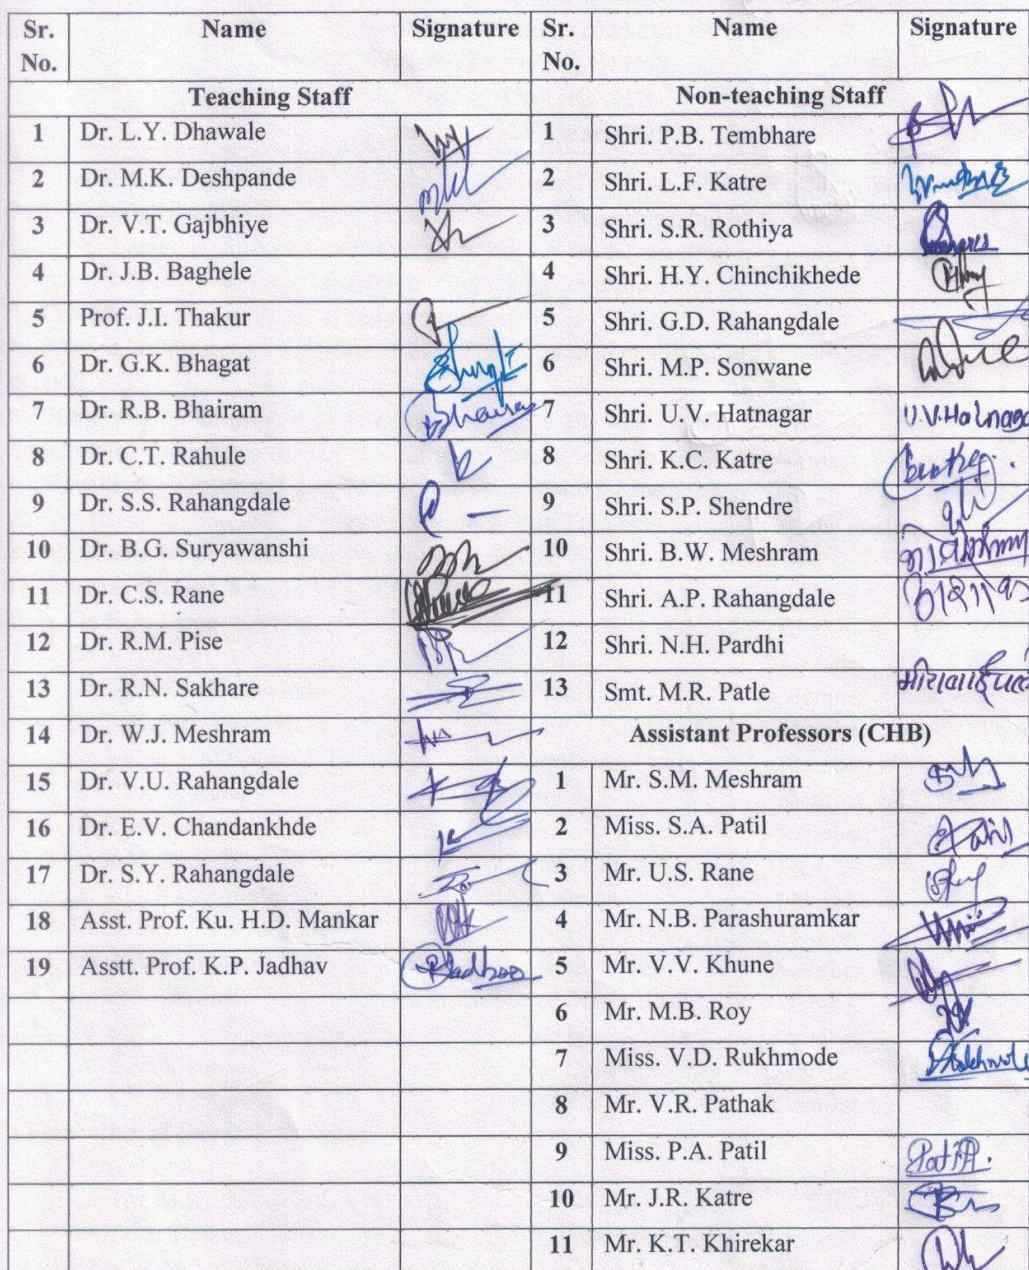 Sr. No. Name Signature Sr. No. Name Signature
Teaching Staff Non-teaching Staff
1 Dr. L.Y. Dhawale 1 Shri. P.B. Tembhare
2 Dr. M.K. Deshpande 2 Shri. L.F. Katre
3 Dr. V.T. Gajbhiye 3 Shri. S.R. Rothiya
4 Dr. J.B. Baghele 4 Shri. H.Y. Chinchikhede
5 Prof. J.I. Thakur 5 Shri. G.D. Rahangdale
6 Dr. G.K. Bhagat 6 Shri. M.P. Sonwane
7 Dr. R.B. Bhairam 7 Shri. U.V. Hatnagar
8 Dr. C.T. Rahule 8 Shri. K.C. Katre
9 Dr. S.S. Rahangdale 9 Shri. S.P. Shendre
10 Dr. B.G. Suryawanshi 10 Shri. B.W. Meshram
11 Dr. C.S. Rane 11 Shri. A.P. Rahangdale
12 Dr. R.M. Pise 12 Shri. N.H. Pardhi
13 Dr. R.N. Sakhare 13 Smt. M.R. Patle
14 Dr. W.J. Meshram Assistant Professors (CHB)
15 Dr. V.U. Rahangdale 1 Mr. S.M. Meshram
16 Dr. E.V. Chandankhde 2 Miss. S.A. Patil
17 Dr. S.Y. Rahangdale 3 Mr. U.S. Rane
18 Asst. Prof. Ku. H.D. Mankar 4 Mr. N.B. Parashuramkar
19 Asstt. Prof. K.P. Jadhav 5 Mr. V.V. Khune
6 Mr. M.B. Roy
7 Miss. V.D. Rukhmode
8 Mr. V.R. Pathak
9 Miss. P.A. Patil
10 Mr. J.R. Katre
11 Mr. K.T. Khirekar